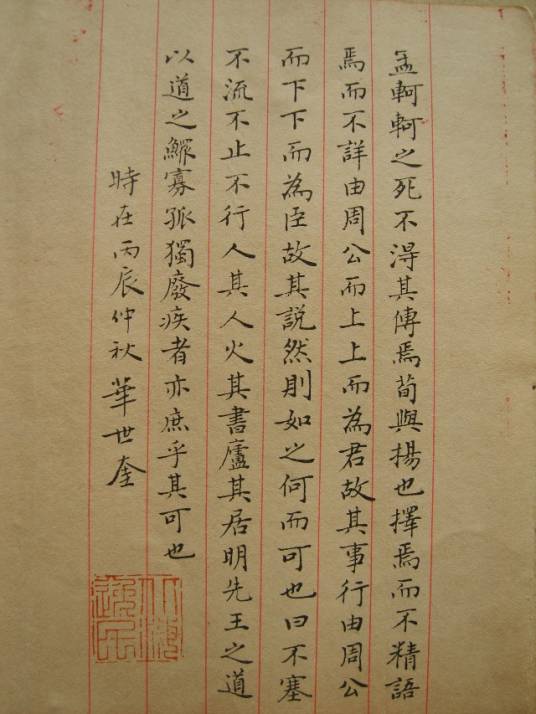 孟軻軻之死不得其傳焉荀與揚也擇焉而不精語
焉而不詳由周公而上上而為君故其事行由周公
而下下而為臣故其說然則如之何而可也曰不塞
不流不止不行人其人火其書廬其居明先王之道
以道之鰥寡孤獨廢疾者亦庶乎其可也
時在丙辰仲秋華世奎